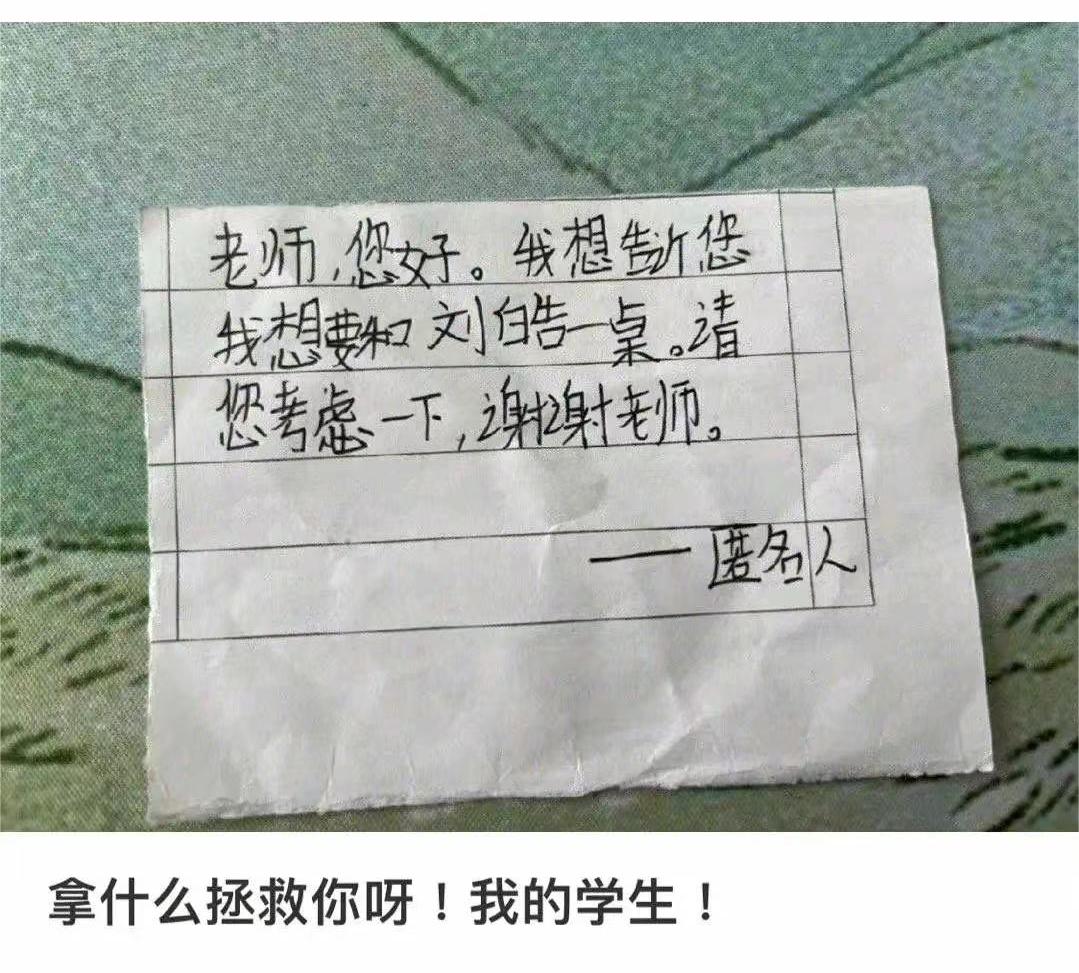 老师,您好。我想告诉您
我想要和刘皓一桌。请
您考虑一下,谢谢老师。
——匿名人
拿什么拯救你呀！我的学生！